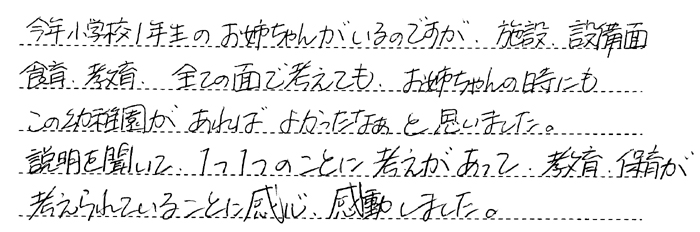 今年小学校1年生のお姉ちゃんがいるのですが、施設、設備面
食育、教育、全ての面で考えても、お姉ちゃんの時にも
この幼稚園があればよかったなぁと思いました。
説明を聞いて、1つ1つのことに考えがあって、教育、保育が
考えられていることに感心、感動しました。